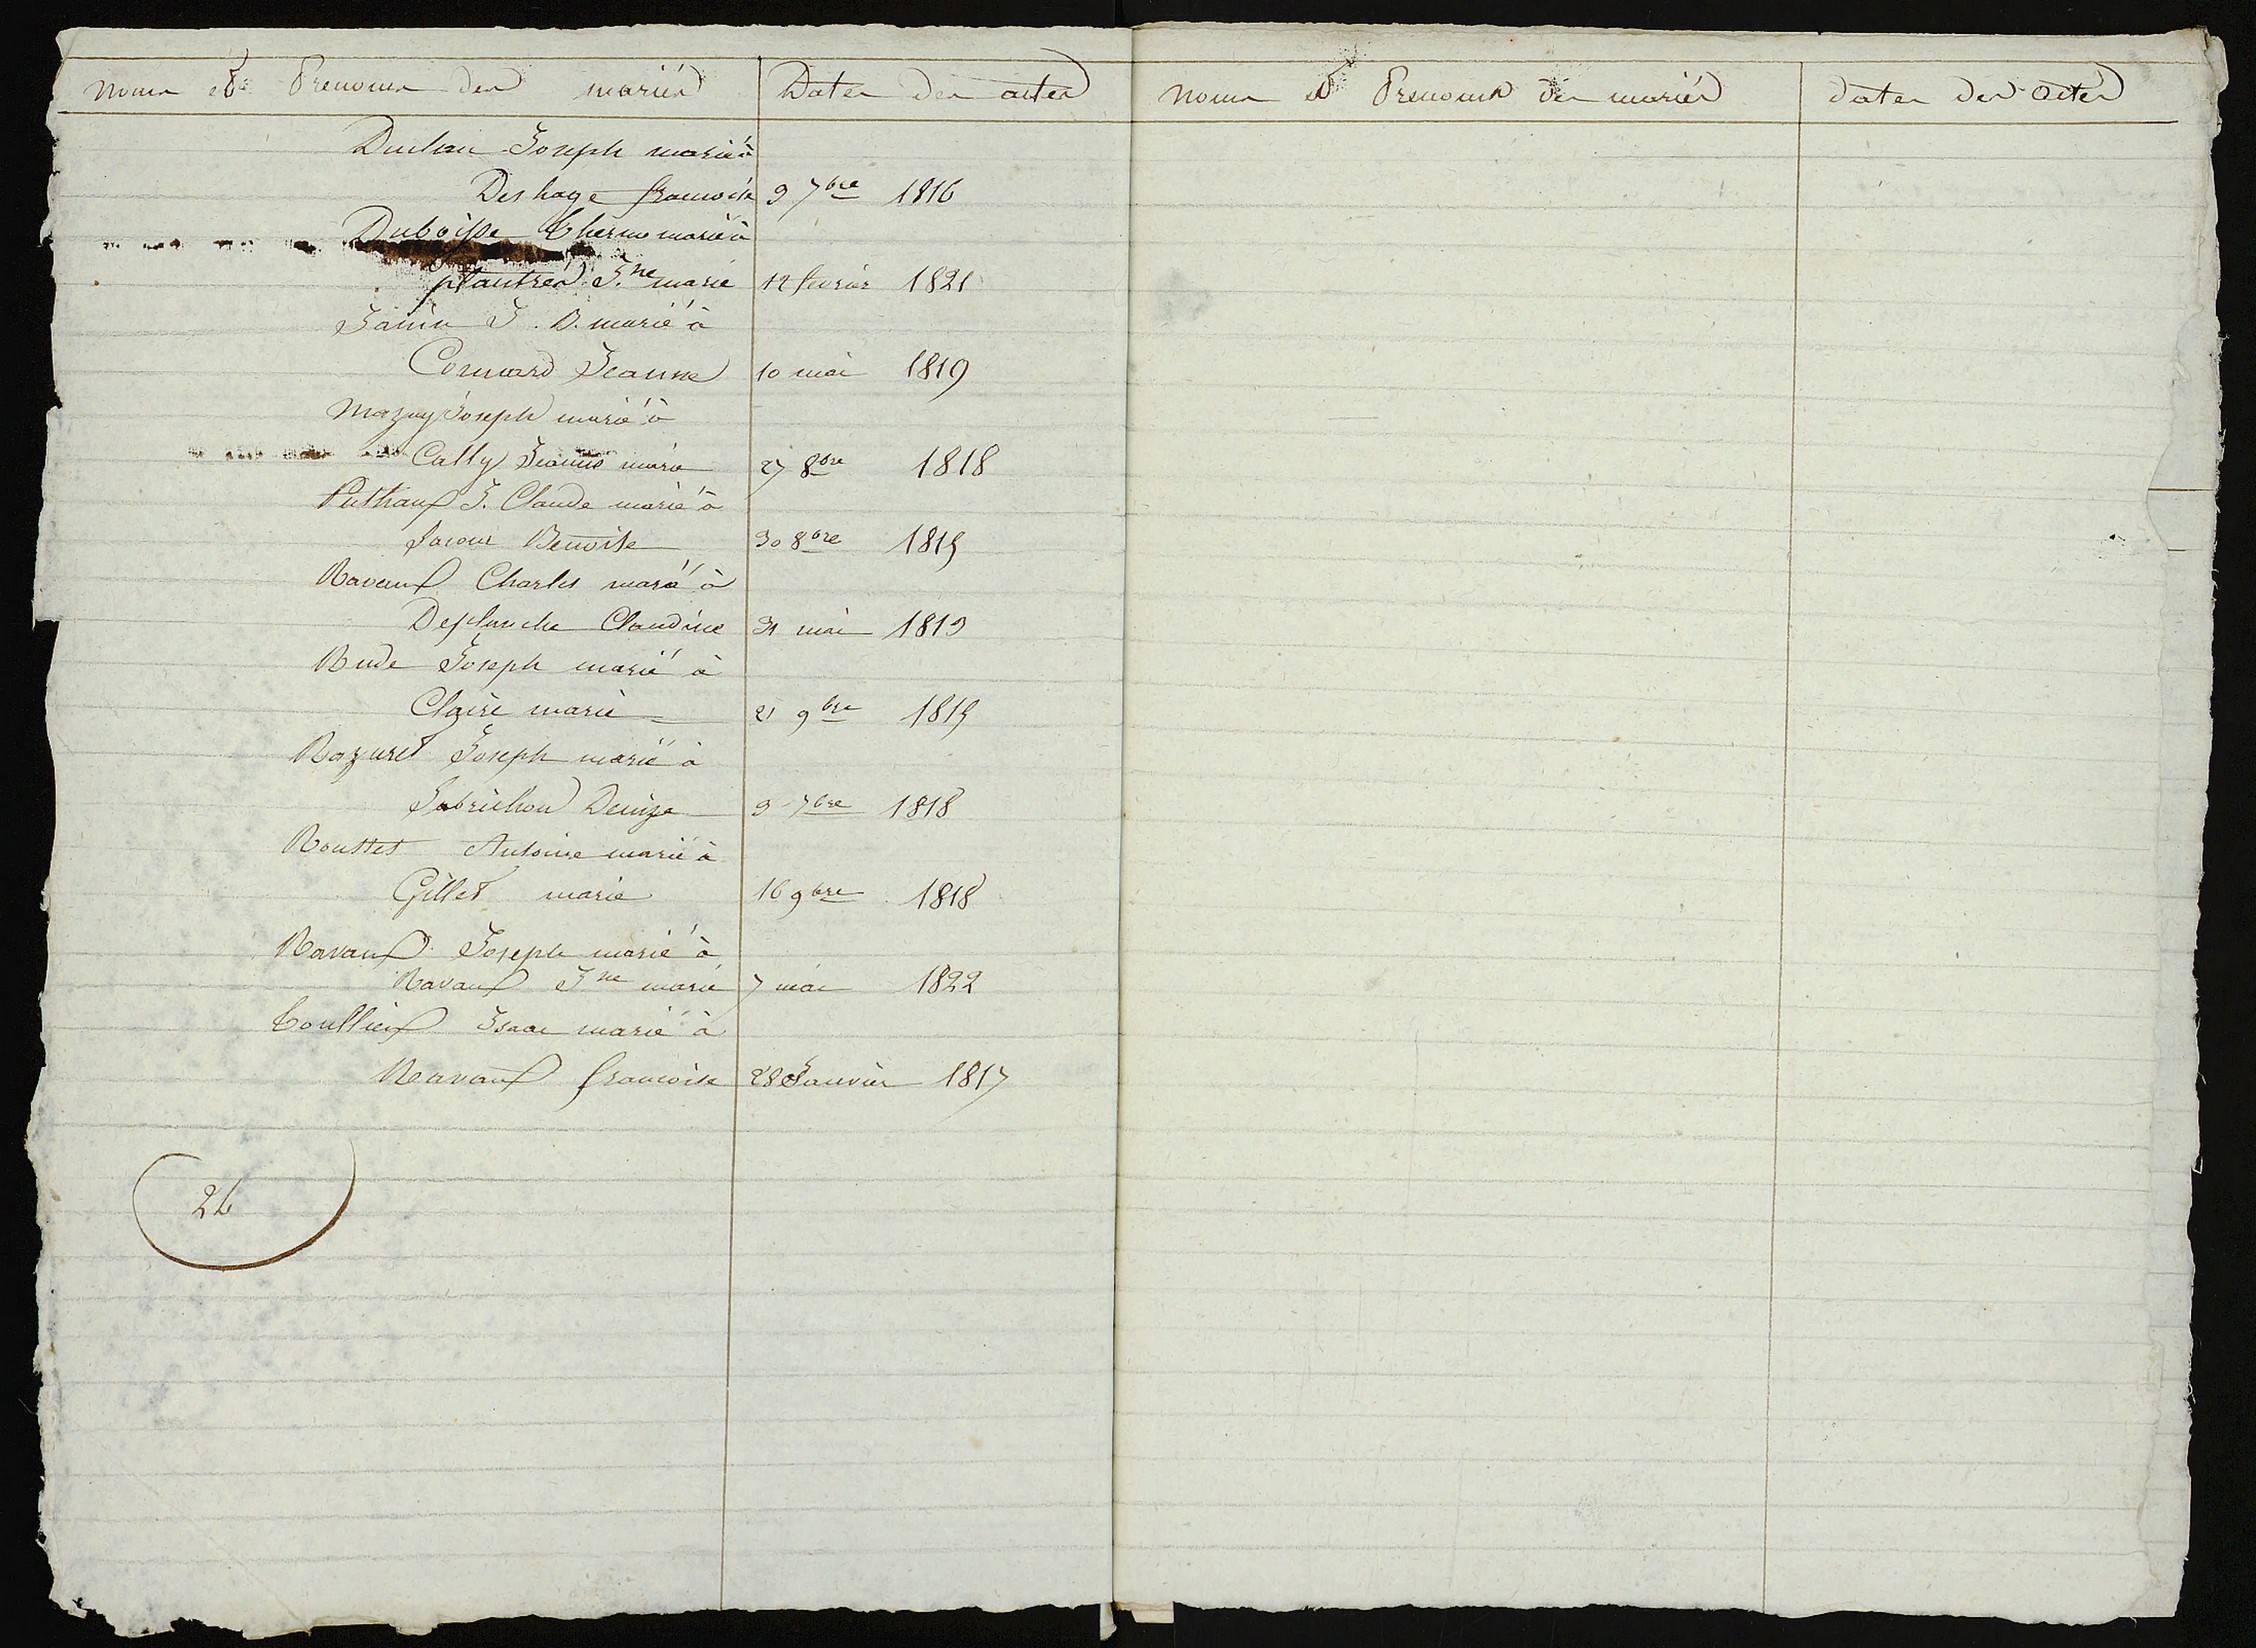 Noms et Prenoms des mariés Dates des actes
Joseph marié à
Deshaye francoise 9 7bre 1816
Duboisse marié à
plautres Jne marie 12 fevrier 1821
Janin J. B. marié à
Jeanne 10 mai 1819
Mazuy Joseph marié à
Cally Jeanne marie 27 8bre 1818
Puthaux J. Claude marié à
Benoite 30 8bre 1815
Ravaux Charles marié à
Desplanche Claudine 31 mai 1819
Rude Joseph marié à
Claire marie 21 9bre 1815
Razuret Joseph marié à
Denize 9 7bre 1818
Roustet Antoine marié à
Gillet marie 16 9bre 1818
Ravaux Joseph marié à
Ravaux Jne marie 7 mai 1822
Isaac marié à
Ravaux francoise 28 Janvier 1817
26
Noms et Prenoms des mariés dates des Actes